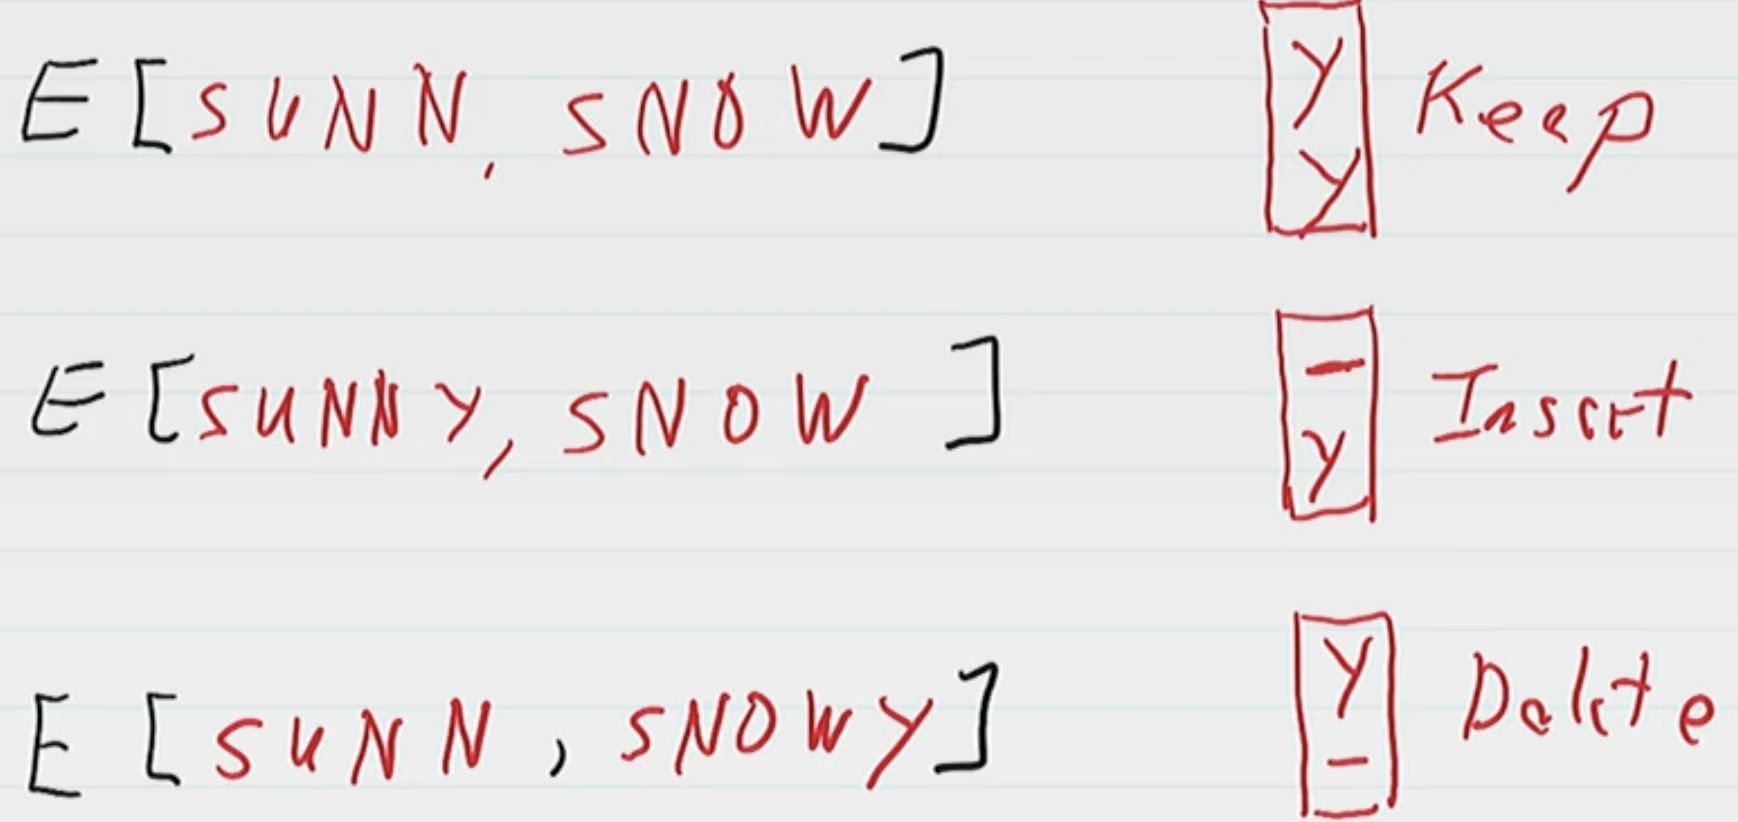 E[SUNN, SNOW] Y Y Keep
E[SUNNY, SNOW] – Y Insert
E[SUNN, SNOWY] Y – Delete